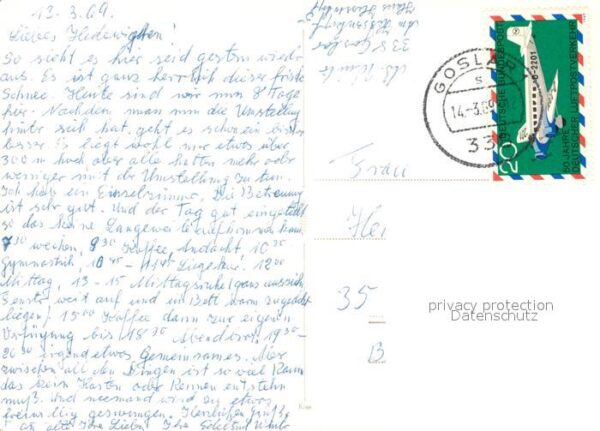 13.3.69.
Liebes Hedewigchen!
So sieht es hier seid gestern wieder
aus. Es ist ganz herrlich dieser frische
Schnee. Heute sind wir nun 8 Tage
hier. Nachdem man nun die Umstellung
hinter sich hat, geht es schon ein bisschen
besser. Es liegt wohl nur etwas über
300 m hoch aber alle hatten mehr oder
weniger mit der Umstellung zu tun.
Ich habe ein Einzelzimmer. Die Betreuung
ist sehr gut. Und der Tag gut eingeteilt
so das keine Langeweile aufkommen kann
7 30 wecken, 8 30 Kaffee, Andacht 10 30
Gymnastik, 10 45 - 11 45 Liegekur. 12 00
Mittag, 13 - 15 Mittagsruhe (ganz
Fenster weit auf und im Bett warm zugedeckt
liegen) 15 00 Kaffee dann zur eigenen
Verfügung bis 18 30 Abendbrot, 19 30 -
20 30 irgend etwas Gemeinsames. Aber
zwischen all den Dingen ist so viel Raum
das kein Hasten oder Rennen entstehn
muß. Und niemand wird zu etwas
gezwungen. Herzlichen Gruß
an alle Ihre Lieben. Ihre
338 Goslar
GOSLAR
14.-3.69
33
DEUTSCHE BUNDESPOST
D-2201
50 JAHRE
DEUTSCHER LUFTPOSTVERKEHR
20
Frau
Hei
35
B
privacy protection
Datenschutz